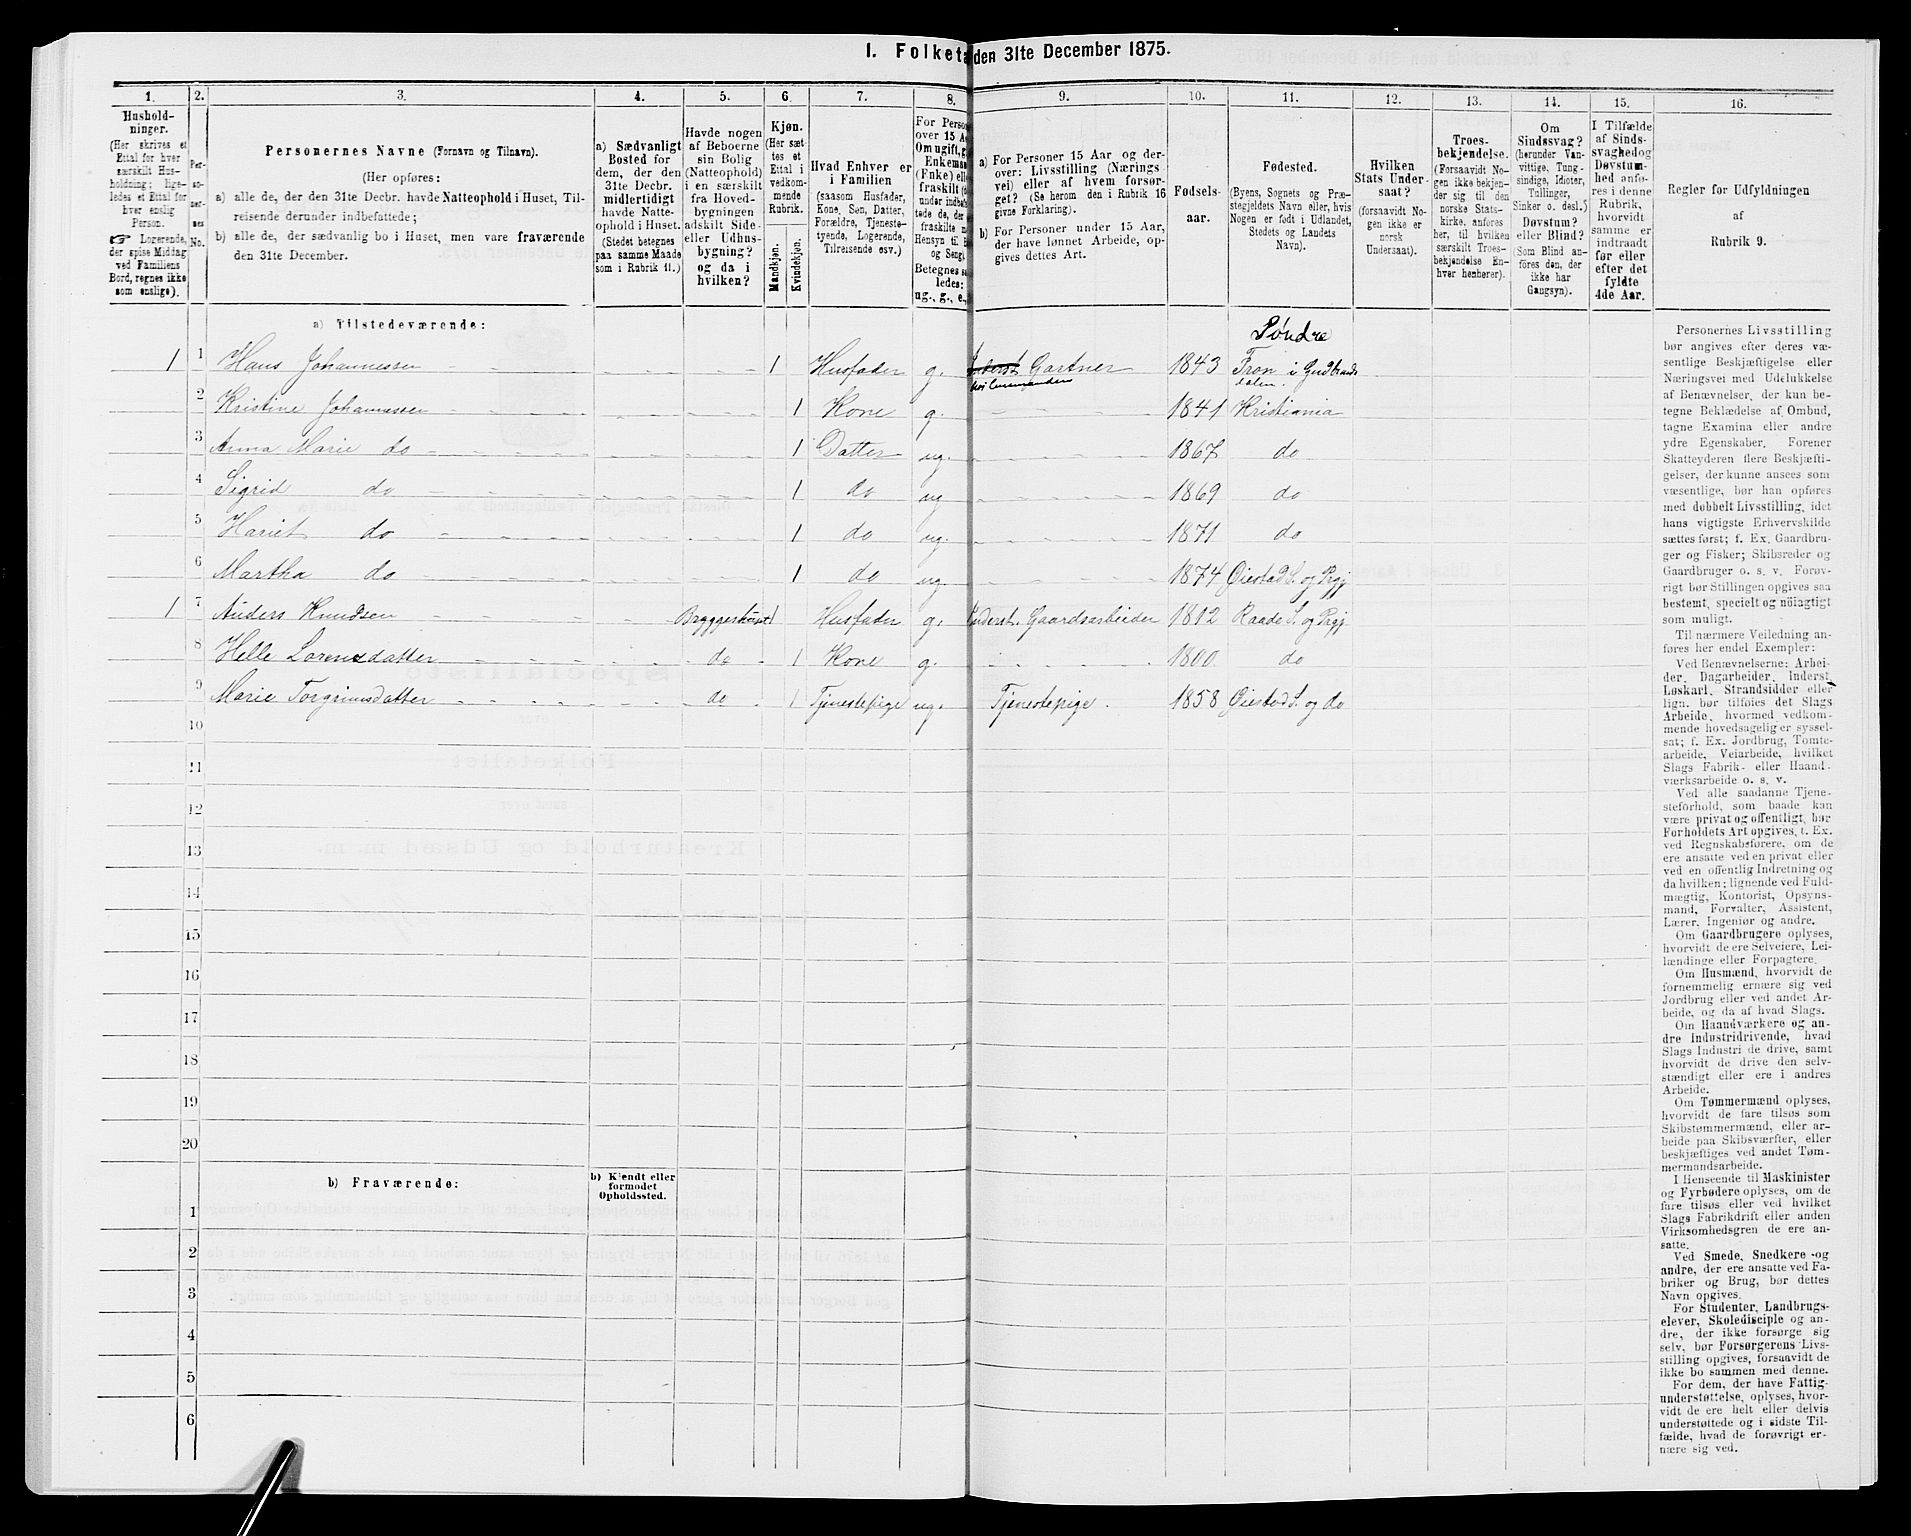 I. Folketa den 31te December 1875.
1. 2. 3. 4. 5. 6. 7. 8. 9. 10. 11. 12. 13. 14. 15. 16.
Hushold-
ninger.
(Her skrives et
Ettal for hver
særskilt Hus-
holdning; lige-
ledes et Ettal for
hver enslig
Person.
☞ Logerende,
der spise Middag
ved Familiens
Bord, regnes ikke
som enslige).
Per-
so-
ner-
nes
No.
Personernes Navne (Fornavn og Tilnavn).
(Her opføres:
a) alle de, der den 31te Decbr. havde Natteophold i Huset, Til-
reisende derunder indbefattede;
b) alle de, der sædvanlig bo i Huset, men vare fraværende
den 31te December.
a) Sædvanligt
Bosted for
dem, der den
31te Decbr.
midlertidigt
havde Natte-
ophold i Huset.
(Stedet betegnes
paa samme Maade
som i Rubrik 11.)
Havde nogen
af Beboerne
sin Bolig
(Natteophold)
i en særskilt
fra Hoved-
bygningen
adskilt Side-
eller Udhus-
bygning?
og da i
hvilken?
Kjøn.
(Her sæt-
tes et
Ettal i
vedkom-
mende
Rubrik.
Mandkjøn.
Kvindekjøn.
Hvad Enhver er
i Familien
(saasom Husfader,
Kone, Søn, Datter,
Forældre, Tjeneste-
tyende, Logerende,
Tilreisende osv.)
For Perso
over 15 A
Om ugift, g
Enkema
(Enke) ell
fraskilt (
under indb
tede de, de
fraskilte
Hensyn til B
og Seng).
Betegnes s
ledes:
ug., g., e.,
a) For Personer 15 Aar og der-
over: Livsstilling (Nærings-
vei) eller af hvem forsør-
get? (Se herom den i Rubrik 16
givne Forklaring).
b) For Personer under 15 Aar,
der have lønnet Arbeide, op-
gives dettes Art.
Fødsels-
aar.
Fødested.
(Byens, Sognets og Præ-
stegjeldets Navn eller, hvis
Nogen er født i Udlandet,
Stedets og Landets
Navn).
Hvilken
Stats Under-
saat?
(forsaavidt No-
gen ikke er
norsk
Undersaat).
Troes-
bekjendelse.
(Forsaavidt No-
gen ikke bekjen-
der sig til den
norske Stats-
kirke, anføres
her, til hvilken
særskilt Troes-
bekjendelse En-
hver henhører).
Om
Sindssvag?
(herunder Van-
vittige, Tung-
sindige, Idioter,
Tullinger,
Sinker o. desl.)
Døvstum?
eller Blind?
(Som Blind an-
føres den, der
ikke har
Gangsyn).
I Tilfælde
af Sinds-
svaghed og
Døvstum-
hed anfø-
res i denne
Rubrik,
hvorvidt
samme er
indtraadt
før eller
efter det
fyldte
4de Aar.
Regler for Udfyldningen
af
Rubrik 9.
a) Tilstedeværende:
Søndre
1 1 Hans Johannessen 1 Husfader g. Gartner 1843 Fron i Gudbrands
dalen.
2 Kristine Johannessen 1 Kone g. 1841 Kristiania
3 Anna Marie do 1 Datter ug. 1867 do
4 Sigrid do 1 do ug 1869 do
5 Hariet do 1 do ug. 1871 do
6 Martha do 1 do ug. 1874 Øiestad S. og Prgj
1 7 Anders Knudsen Bryggerhuset 1 Husfader g. Inderst. Gaardsarbeider 1812 Raade S. og Prgj.
8 Helle Lorensdatter do 1 Kone g. 1800 do
9 Marie Torgrimsdatter do 1 Tjenestepige ug. Tjenestepige. 1858 Øiestad S. og do
10
11
12
13
14
15
16
17
18
19
20
b) Fraværende: b) Kjendt eller
formodet
Opholdssted.
1
2
3
4
5
6
Personernes Livsstilling
bør angives efter deres væ-
sentlige Beskjæftigelse eller
Næringsvei med Udelukkelse
af Benævnelser, der kun be-
tegne Beklædelse af Ombud,
tagne Examina eller andre
ydre Egenskaber. Forener
Skatteyderen flere Beskjæfti-
gelser, der kunne ansees som
væsentlige, bør han opføres
med dobbelt Livsstilling, idet
hans vigtigste Erhvervskilde
sættes først; f. Ex. Gaardbru-
ger og Fisker; Skibsreder og
Gaardbruger o. s. v. Forøv-
rigt bør Stillingen opgives saa
bestemt, specielt og nöiagtigt
som muligt.
Til nærmere Veiledning an-
føres her endel Exempler:
Ved Benævnelserne: Arbei-
der, Dagarbeider, Inderst,
Løskarl, Strandsidder eller
lign. bør tilføies det Slags
Arbeide, hvormed vedkom-
mende hovedsagelig er syssel-
sat; f. Ex. Jordbrug, Tomte-
arbeide, Veiarbeide, hvilket
Slags Fabrik- eller Haand-
værksarbeide o. s. v.
Ved alle saadanne Tjene-
steforhold, som baade kan
være privat og offentligt, bør
Forholdets Art opgives, t. Ex.
ved Regnskabsførere, om de
ere ansatte ved en privat eller
ved en offentlig Indretning og
da hvilken; lignende ved Fuld-
mægtig, Kontorist, Opsyns-
mand, Forvalter, Assistent,
Lærer, Ingeniør og andre.
Om Gaardbrugere oplyses,
hvorvidt de ere Selveiere, Lei-
lændinge eller Forpagtere.
Om Husmænd, hvorvidt de
fornemmelig ernære sig ved
Jordbrug eller ved andet Ar-
beide, og da af hvad Slags.
Om Haandværkere og an-
dre Industridrivende, hvad
Slags Industri de drive, samt
hvorvidt de drive den selv-
stændigt eller ere i andres
Arbeide.
Om Tømmermænd oplyses,
hvorvidt de fare tilsøs som
Skibstømmermænd, eller ar-
beide paa Skibsværfter, eller
beskjæftiges ved andet Tøm-
mermandsarbeide.
I Henseende til Maskinister
og Fyrbødere oplyses, om de
fare tilsøs eller ved hvilket
Slags Fabrikdrift eller anden
Virksomhedsgren de ere an-
satte.
Ved Smede, Snedkere og
andre, der ere ansatte ved Fa-
briker og Brug, bør dettes
Navn opgives.
For Studenter, Landbrugs-
elever, Skoledisciple og an-
dre, der ikke forsørge sig
selv, bør Forsørgerens Livs-
stilling opgives, forsaavidt de
ikke bo sammen med denne.
For dem, der have Fattig-
understøttelse, oplyses, hvor-
vidt de ere helt eller delvis
understøttede og i sidste Til-
fælde, hvad de forøvrigt er-
nære sig ved.